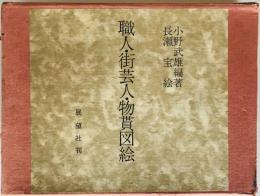 職人・街芸人・物貰図絵
小野武雄編著
長瀬宝絵
展望社刊